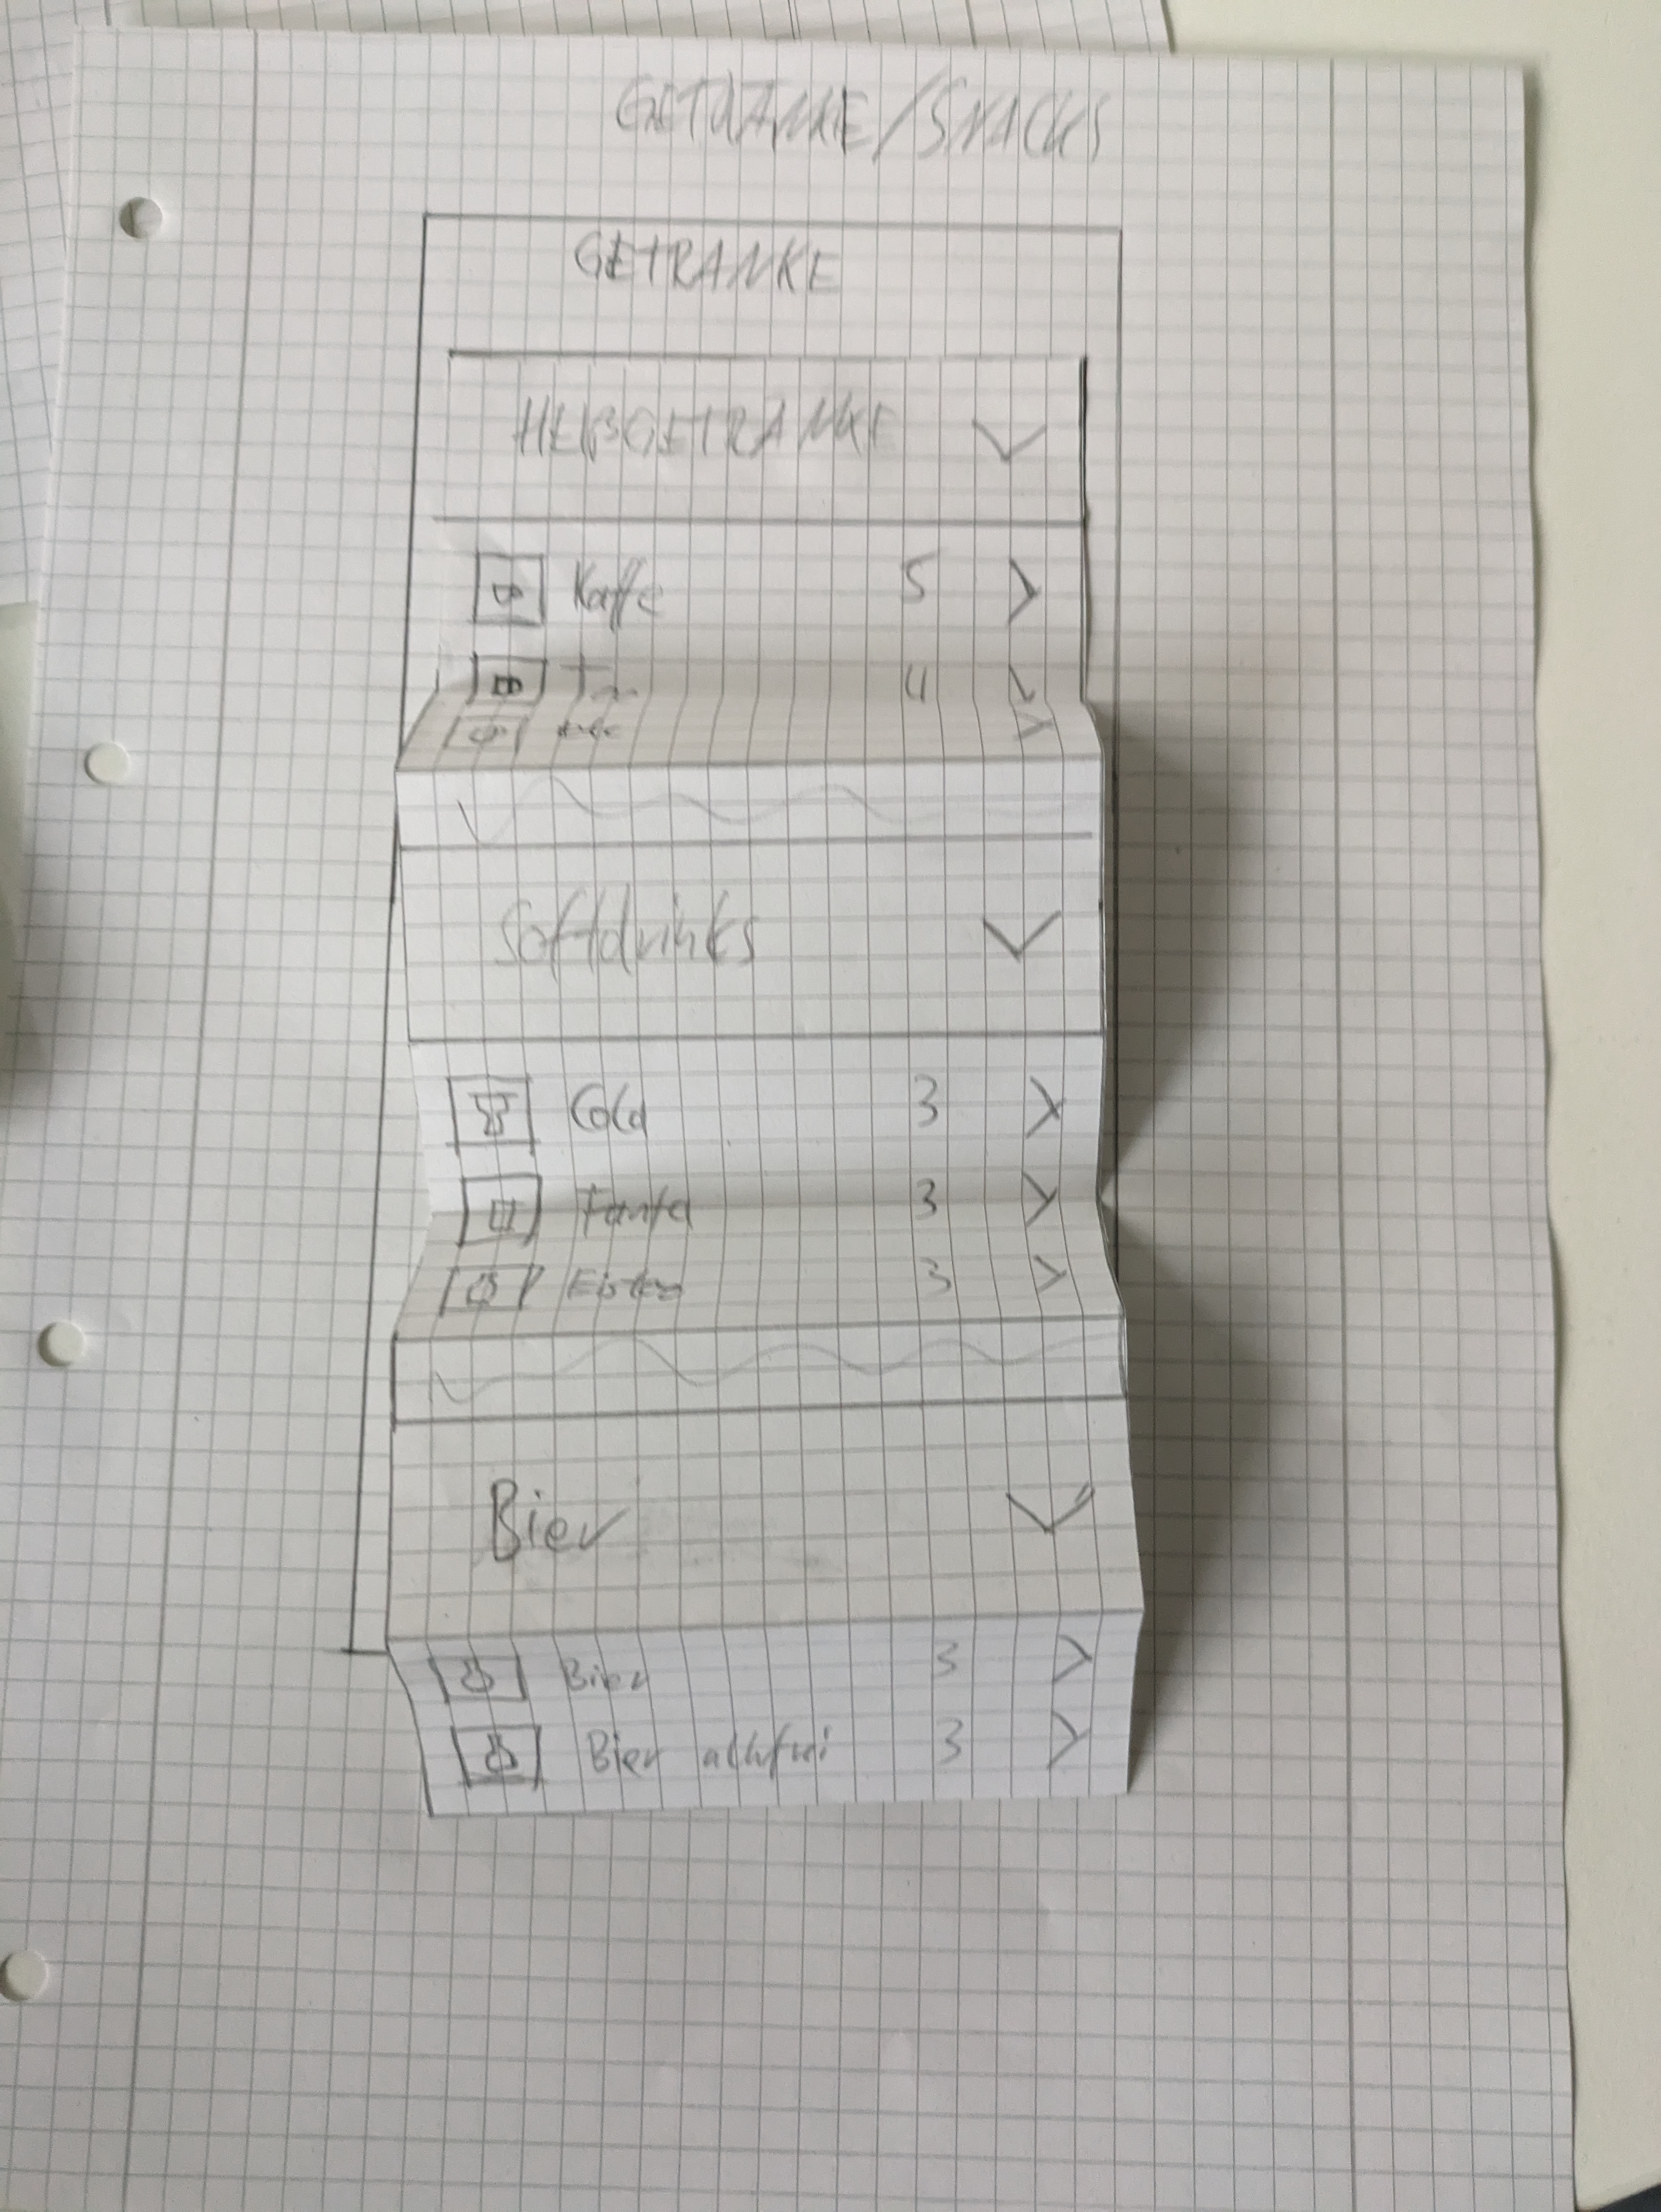 GETRÄNKE/SNACKS
GETRÄNKE
HEIßGETRÄNKE
Kaffe 5
4
Softdrinks
Cola 3
Fanta 3
Eistee 3
Bier
Bier 3
Bier alkfrei 3